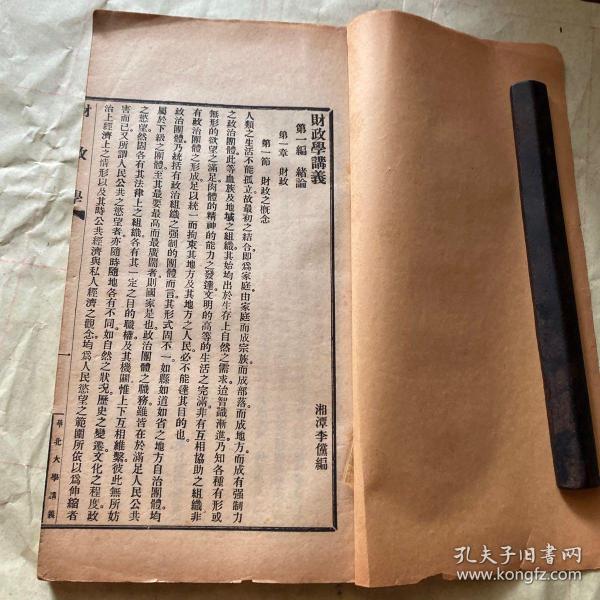 財政學講義
湘潭李儻編
第一編　緒論
第一章　財政
第一節　財政之概念
人類之生活不能孤立故最初之結合即爲家庭由家庭而成宗族而成部落而成地方而成有强制力
之政治團體此等血族及地域之組織其始均出於生存上自然之需求迨智識漸進乃知各種有形或
無形的欲望之滿足肉體的精神的能力之發達文明的高等的生活之完滿非有互相協助之組織非
有政治團體之形成足以統一而拘束其地方及其地方之人民必不能達其目的也
政治團體乃統括有政治組織之强制的團體而言其形式固不一如縣如道如省之地方自治團體均
屬於下級之團體至其最要最高而最廣闊者則國家是也政治團體之職務雖皆在於滿足人民公共
之慾望然固各有其法律上之組織各有其一定之目的職權及其機關惟上下互相維繫彼此無所妨
害而已又所謂人民公共之慾望者亦隨時隨地各有不同如自然之狀况歷史之變遷文化之程度政
治上經濟上之情形以及其時公共經濟與私人經濟之觀念均爲人民慾望之範圍所依以爲伸縮者
財政學
一
華北大學講義
孔夫子旧书网
www.kongfz.com